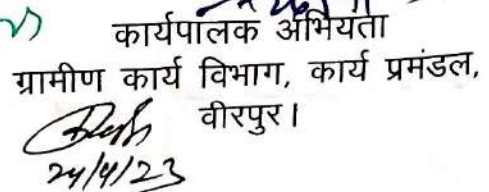 कार्यपालक अभियंता
ग्रामीण कार्य विभाग, कार्य प्रमंडल,
वीरपुर।
24/4/23